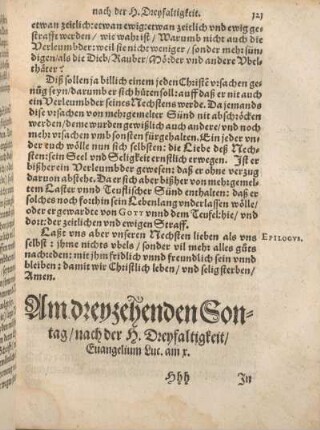 nach der H. Dreyfaltigkeit. 321
etwan zeitlich: etwan ewig: etwan zeitlich vnd ewig ge
strafft werden / wie wahr ist / Warumb nicht auch die
Verleumbder: weil sie nicht weniger / sonder mehr sün
digen / als die Dieb / Rauber / Mörder vnd andere Vbel
thäter?
Diß sollen ja billich einem jeden Christē vrsachen ge
nůg seyn / darumb er sich hüten soll: auff daß er nit auch
ein Verleumbder seines Nechstens werde. Da jemands
dise vrsachen von mehrgemelter Sünd nit abschröcken
werden / deme wurden gewißlich auch andere / vnd noch
mehr vrsachen vmb sonsten fürgehalten. Ein jeder vn
der euch wölle nun sich selbsten: die Liebe deß Nech
sten: sein Seel vnd Seligkeit ernstlich erwegen. Ist er
bißher ein Verleumbder gewesen: daß er ohne verzug
daruon abstehe. Da er sich aber bißher von mehrgemel
tem Laster vnnd Teuflischer Sünd enthalten: daß er
solches noch forthin sein Lebenlang vnderlassen wölle /
oder er gewarte von GOTT vnnd dem Teufel: hie / vnd
dort: der zeitlichen vnd ewigen Straff.
Laßt vns aber vnseren Nechsten lieben als vns
selbst: ihme nichts vbels / sonder vil mehr alles gůts
nachreden: mit jhm fridlich vnnd freundlich sein vnnd
bleiben: damit wir Christlich leben / vnd selig sterben /
Amen.
EPILOGVS.
Am dreyzehenden Son-
tag / nach der H. Dreyfaltigkeit /
Euangelium Luc. am x.
Hhh In